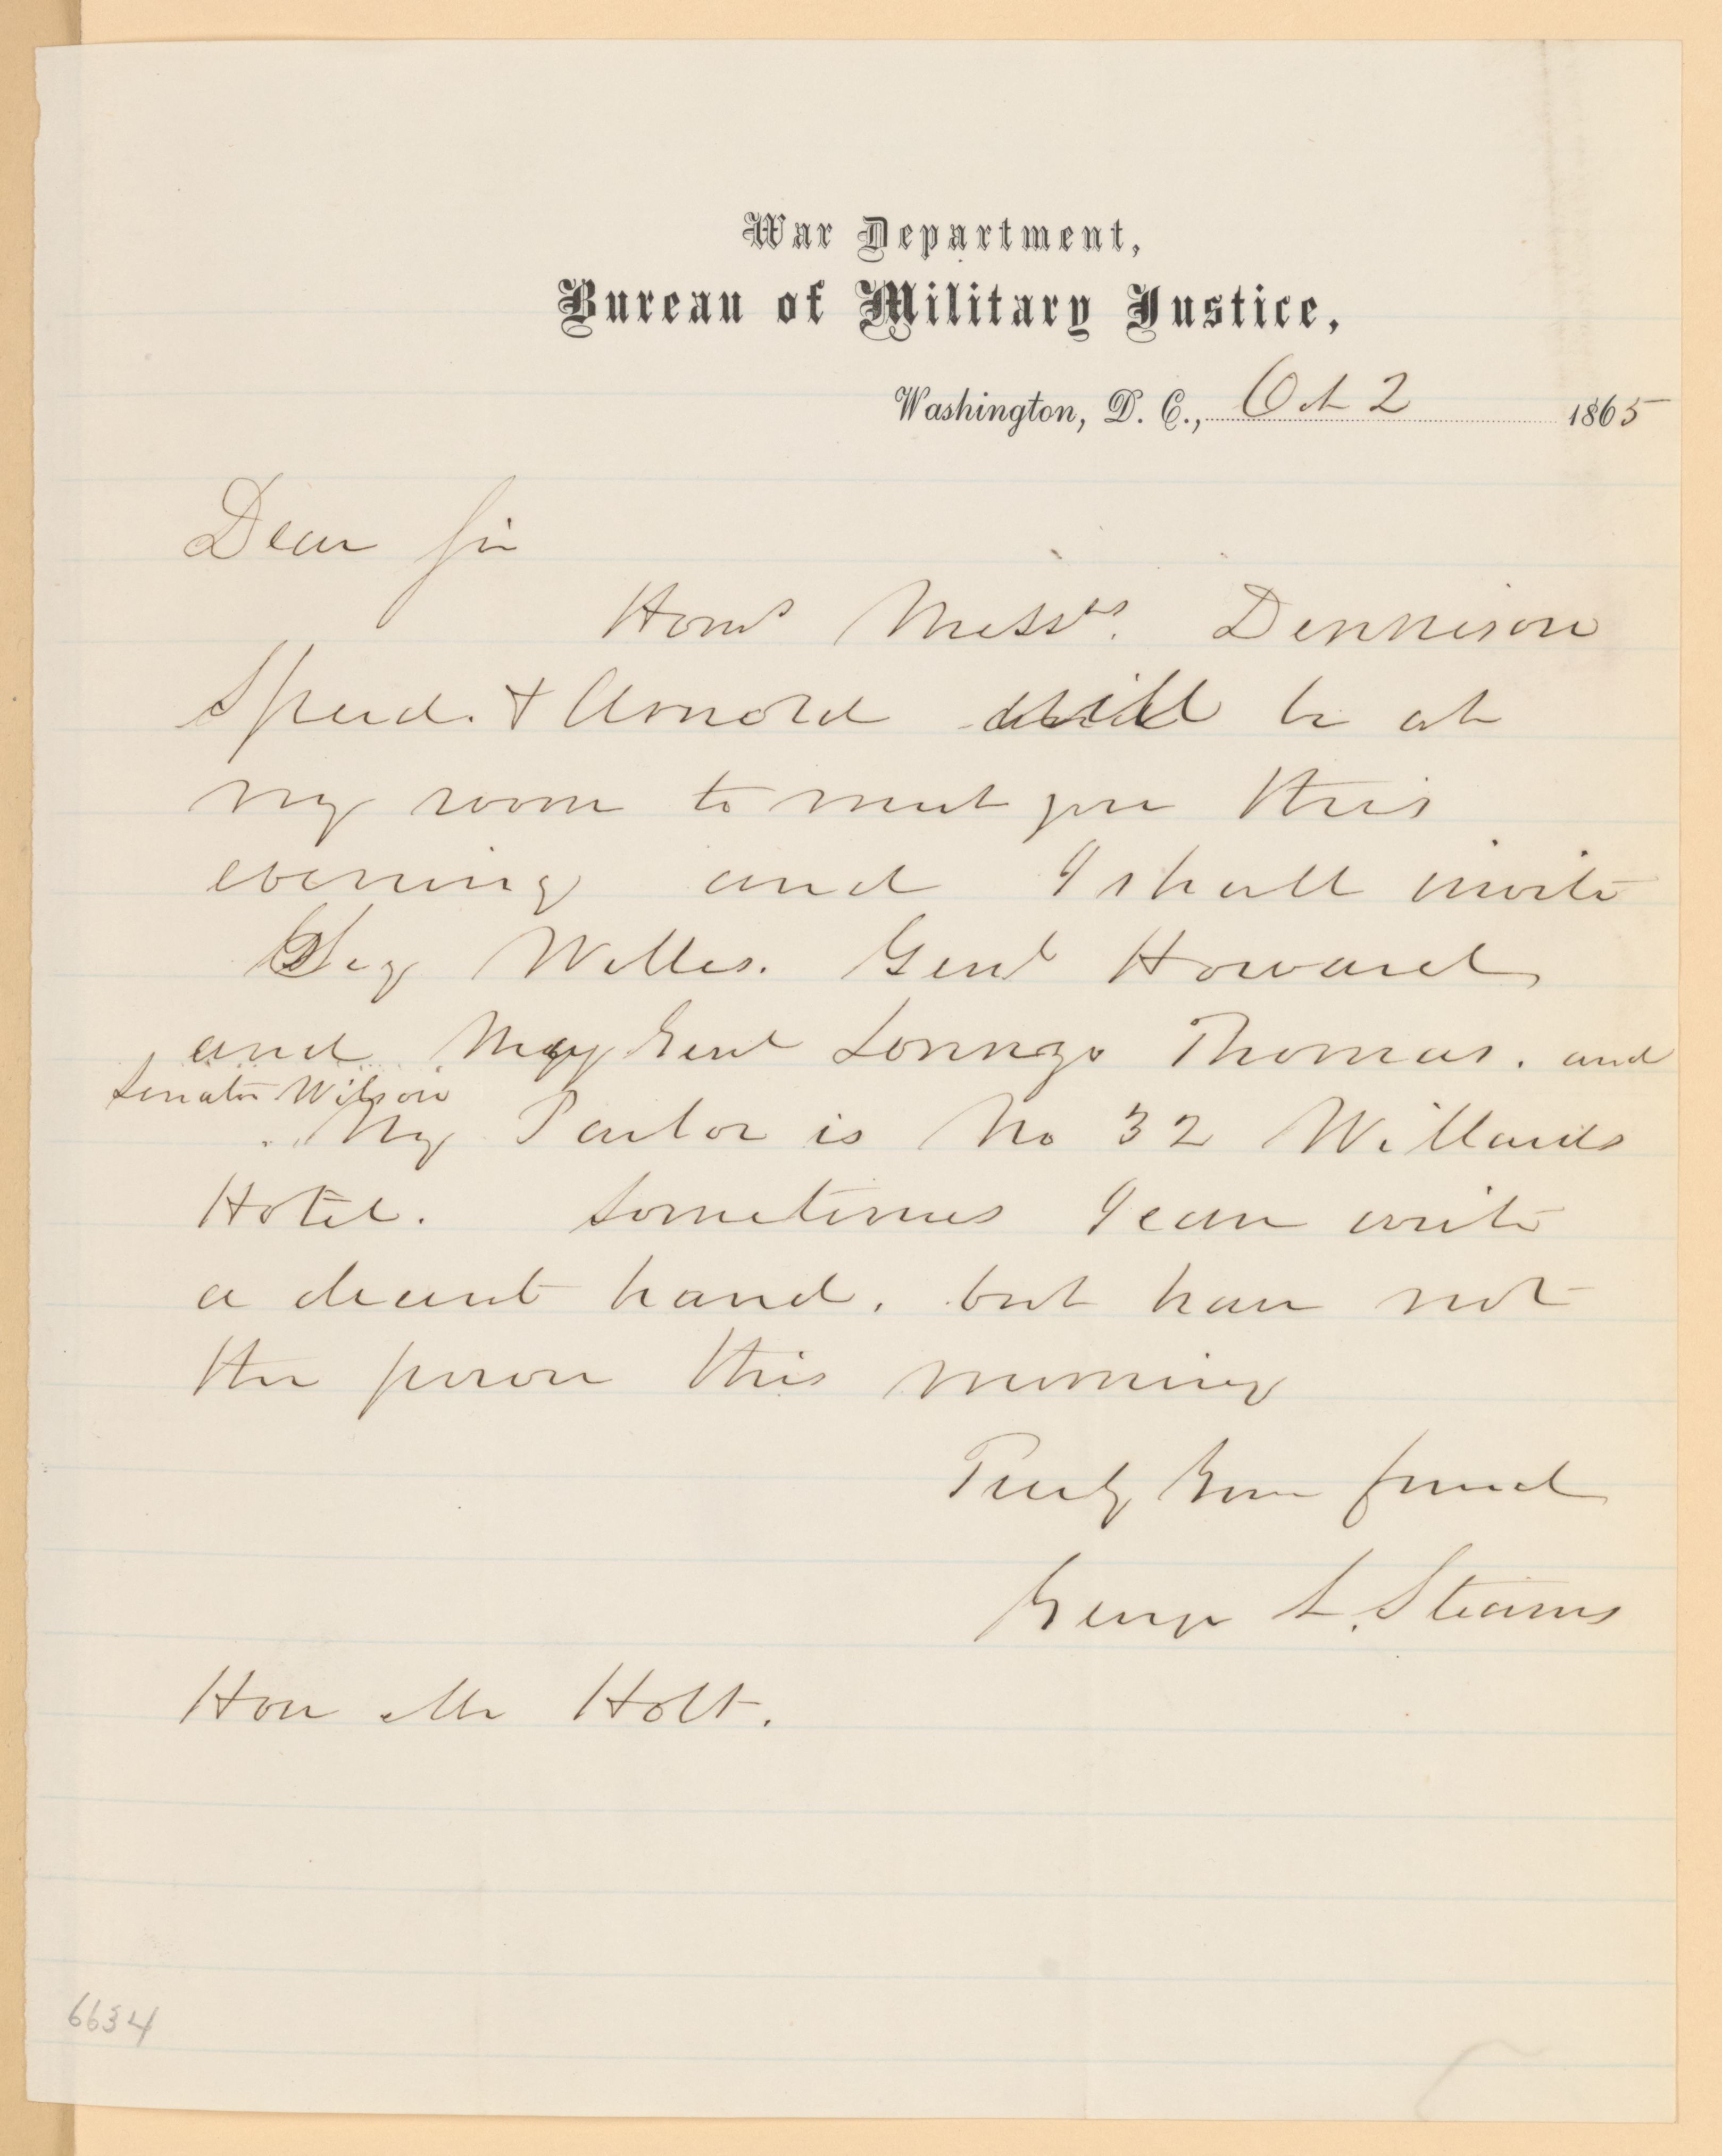 War Department,
Bureau of Military Justice,
Washington, D. C., Oct 2 1865
Dear Sir
Honls Messrs. Dennison
Speed. & Arnold will be at
my room to meet you this
evening and I shall invite
Secy Welles. Genl Howard
and Maj Genl Lorenzo Thomas. and
Senator Wilson
My Parlor is No 32 Willards
Hotel. Sometimes I can write
a decent hand, but have not
the power this morning
Truly Your friend
George L. Stearns
Hon Mr Holt.
6634